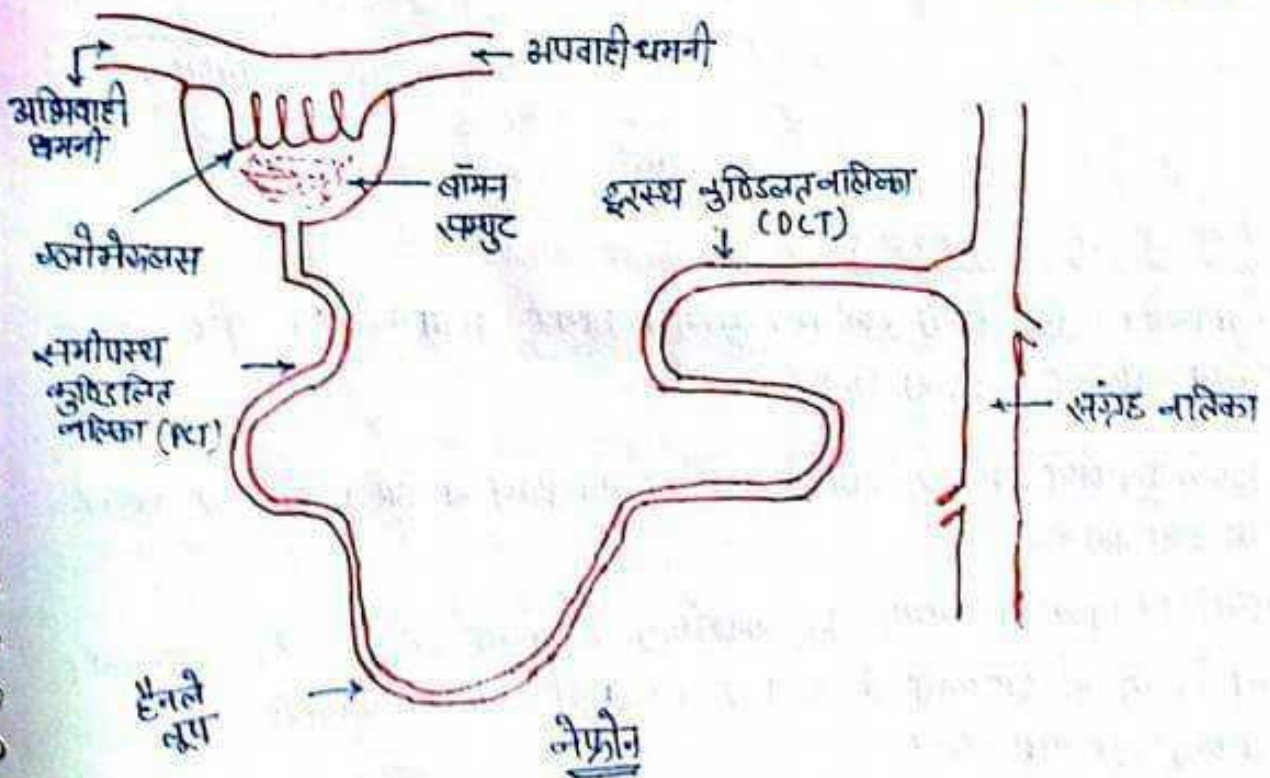 अपवाही धमनी
अभिवाही
धमनी
बॉमन
सम्पुट
दूरस्थ कुण्डिलत नालिका
(DCT)
ग्लोमेरूलस
समीपस्थ
कुण्डिलित
नालिका (PCT)
संग्रह नालिका
हैनले
लूप
नेफ्रोन